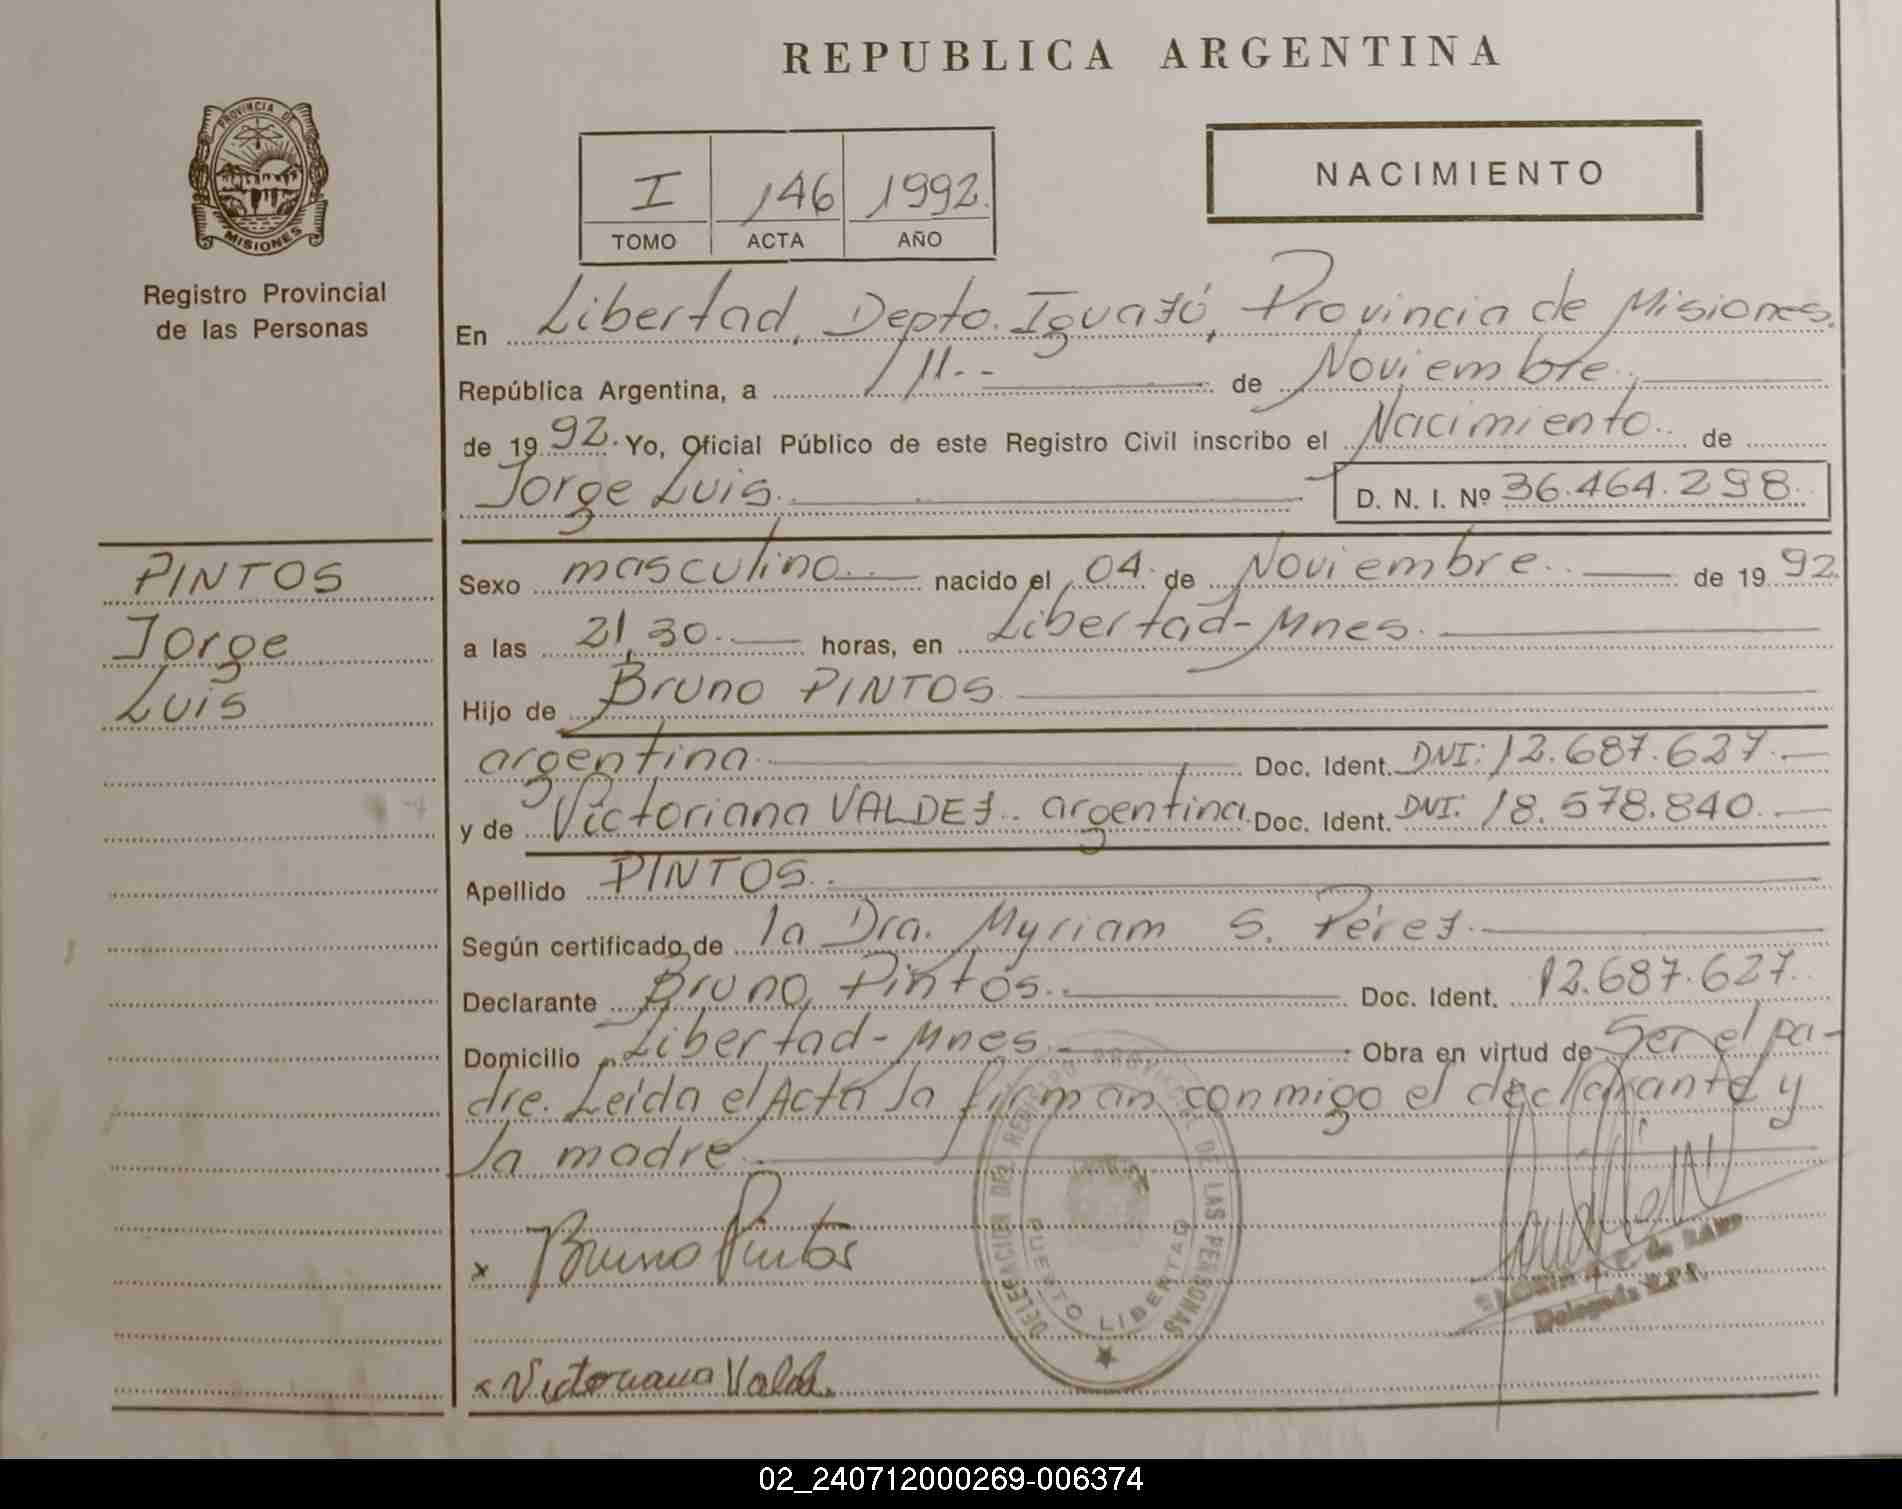 REPUBLICA ARGENTINA
PROVINCIA DE
MISIONES
Registro Provincial
de las Personas
NACIMIENTO
I 146 1992.
TOMO ACTA AÑO
En Libertad, Depto. Iguazú, Provincia de Misiones.
República Argentina, a 11.- - de Noviembre.
de 1992. Yo, Oficial Público de este Registro Civil inscribo el Nacimiento.. de
Jorge Luis. D. N. I. Nº 36.464.298.
PINTOS
Jorge
Luis
Sexo masculino.. nacido el 04. de Noviembre.. de 1992.
a las 21,30. horas, en Libertad-Mnes.
Hijo de Bruno PINTOS
argentina. Doc. Ident. DNI: 12.687.627.
y de Victoriana VALDEZ.. argentina. Doc. Ident. DNI: 18.578.840.
Apellido PINTOS..
Según certificado de la Dra. Myriam S. Pérez.
Declarante Bruno Pintos.. Doc. Ident. 12.687.627..
Domicilio Libertad-Mnes. Obra en virtud de Ser el pa-
dre. Leída el Acta la firman conmigo el declarante y
la madre.
x Bruno Pintos
DELEGACION DEL REGISTRO PROVINCIAL DE LAS PERSONAS
PUERTO LIBERTAD
Delegada R.P.P.
x Victoriana Valdez
02_240712000269-006374